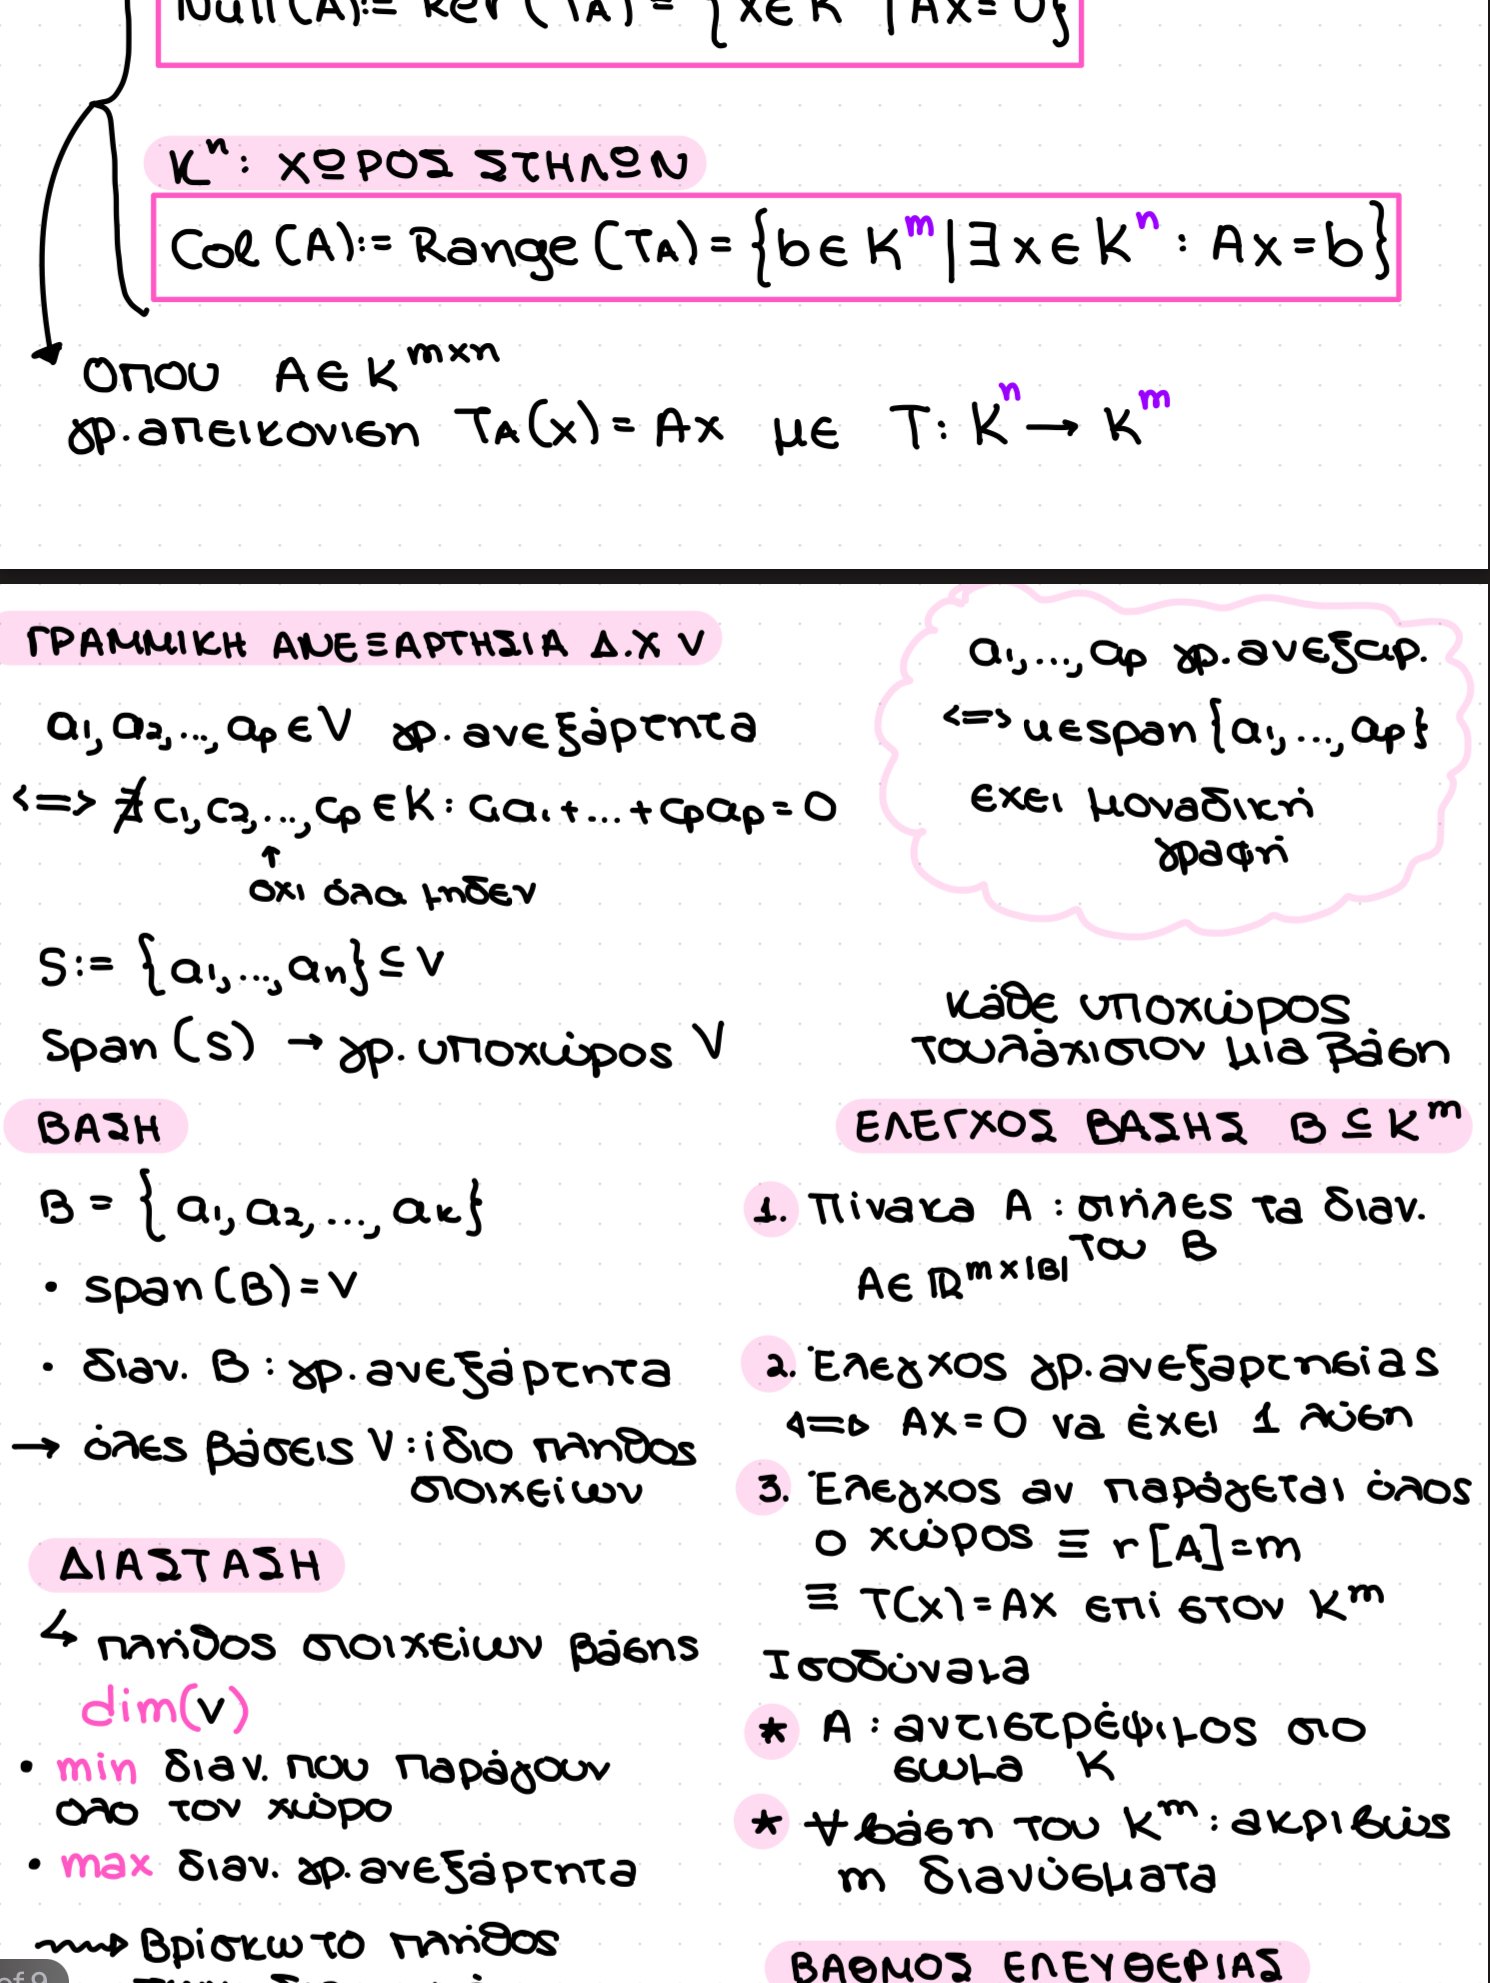 Null(A):= Ker(TA) = {x∈K | Ax=0}
Kⁿ: ΧΩΡΟΣ ΣΤΗΛΩΝ
Col(A):= Range(TA) = {b∈Kᵐ | ∃x∈Kⁿ : Ax=b}
όπου A∈K^(m×n)
γρ.απεικόνιση TA(x) = Ax με T: Kⁿ → Kᵐ
ΓΡΑΜΜΙΚΗ ΑΝΕΞΑΡΤΗΣΙΑ Δ.Χ V
a₁, a₂, ..., aₚ ∈ V γρ. ανεξάρτητα
<=> ∄ c₁, c₂, ..., cₚ ∈ K: c₁a₁+...+cₚaₚ = 0
↑
όχι όλα μηδέν
S:= {a₁, ..., aₙ} ⊆ V
Span(S) → γρ. υποχώρος V
a₁, ..., aₚ γρ. ανεξαρ.
<=> u∈span{a₁, ..., aₚ}
έχει μοναδική
γραφή
ΒΑΣΗ
B = {a₁, a₂, ..., aₖ}
• span(B) = V
• διαν. B : γρ. ανεξάρτητα
→ όλες βάσεις V: ίδιο πλήθος
στοιχείων
ΔΙΑΣΤΑΣΗ
↳ πλήθος στοιχείων βάσης
dim(V)
• min διαν. που παράγουν
όλο τον χώρο
• max διαν. γρ. ανεξάρτητα
⇝ Βρίσκω το πλήθος
κάθε υποχώρος
τουλάχιστον μία βάση
ΕΛΕΓΧΟΣ ΒΑΣΗΣ B ⊆ Kᵐ
1. Πίνακα A : στήλες τα διαν.
του B
A∈ℝ^(m×|B|)
2. Έλεγχος γρ.ανεξαρτησίας
<=> AX=0 να έχει 1 λύση
3. Έλεγχος αν παράγεται όλος
ο χώρος ≡ r[A]=m
≡ T(x)=AX επί στον Kᵐ
Ισοδύναμα
* A : αντιστρέψιμος στο
σώμα K
* ∀ βάση του Kᵐ: ακριβώς
m διανύσματα
ΒΑΘΜΟΣ ΕΛΕΥΘΕΡΙΑΣ
of 9